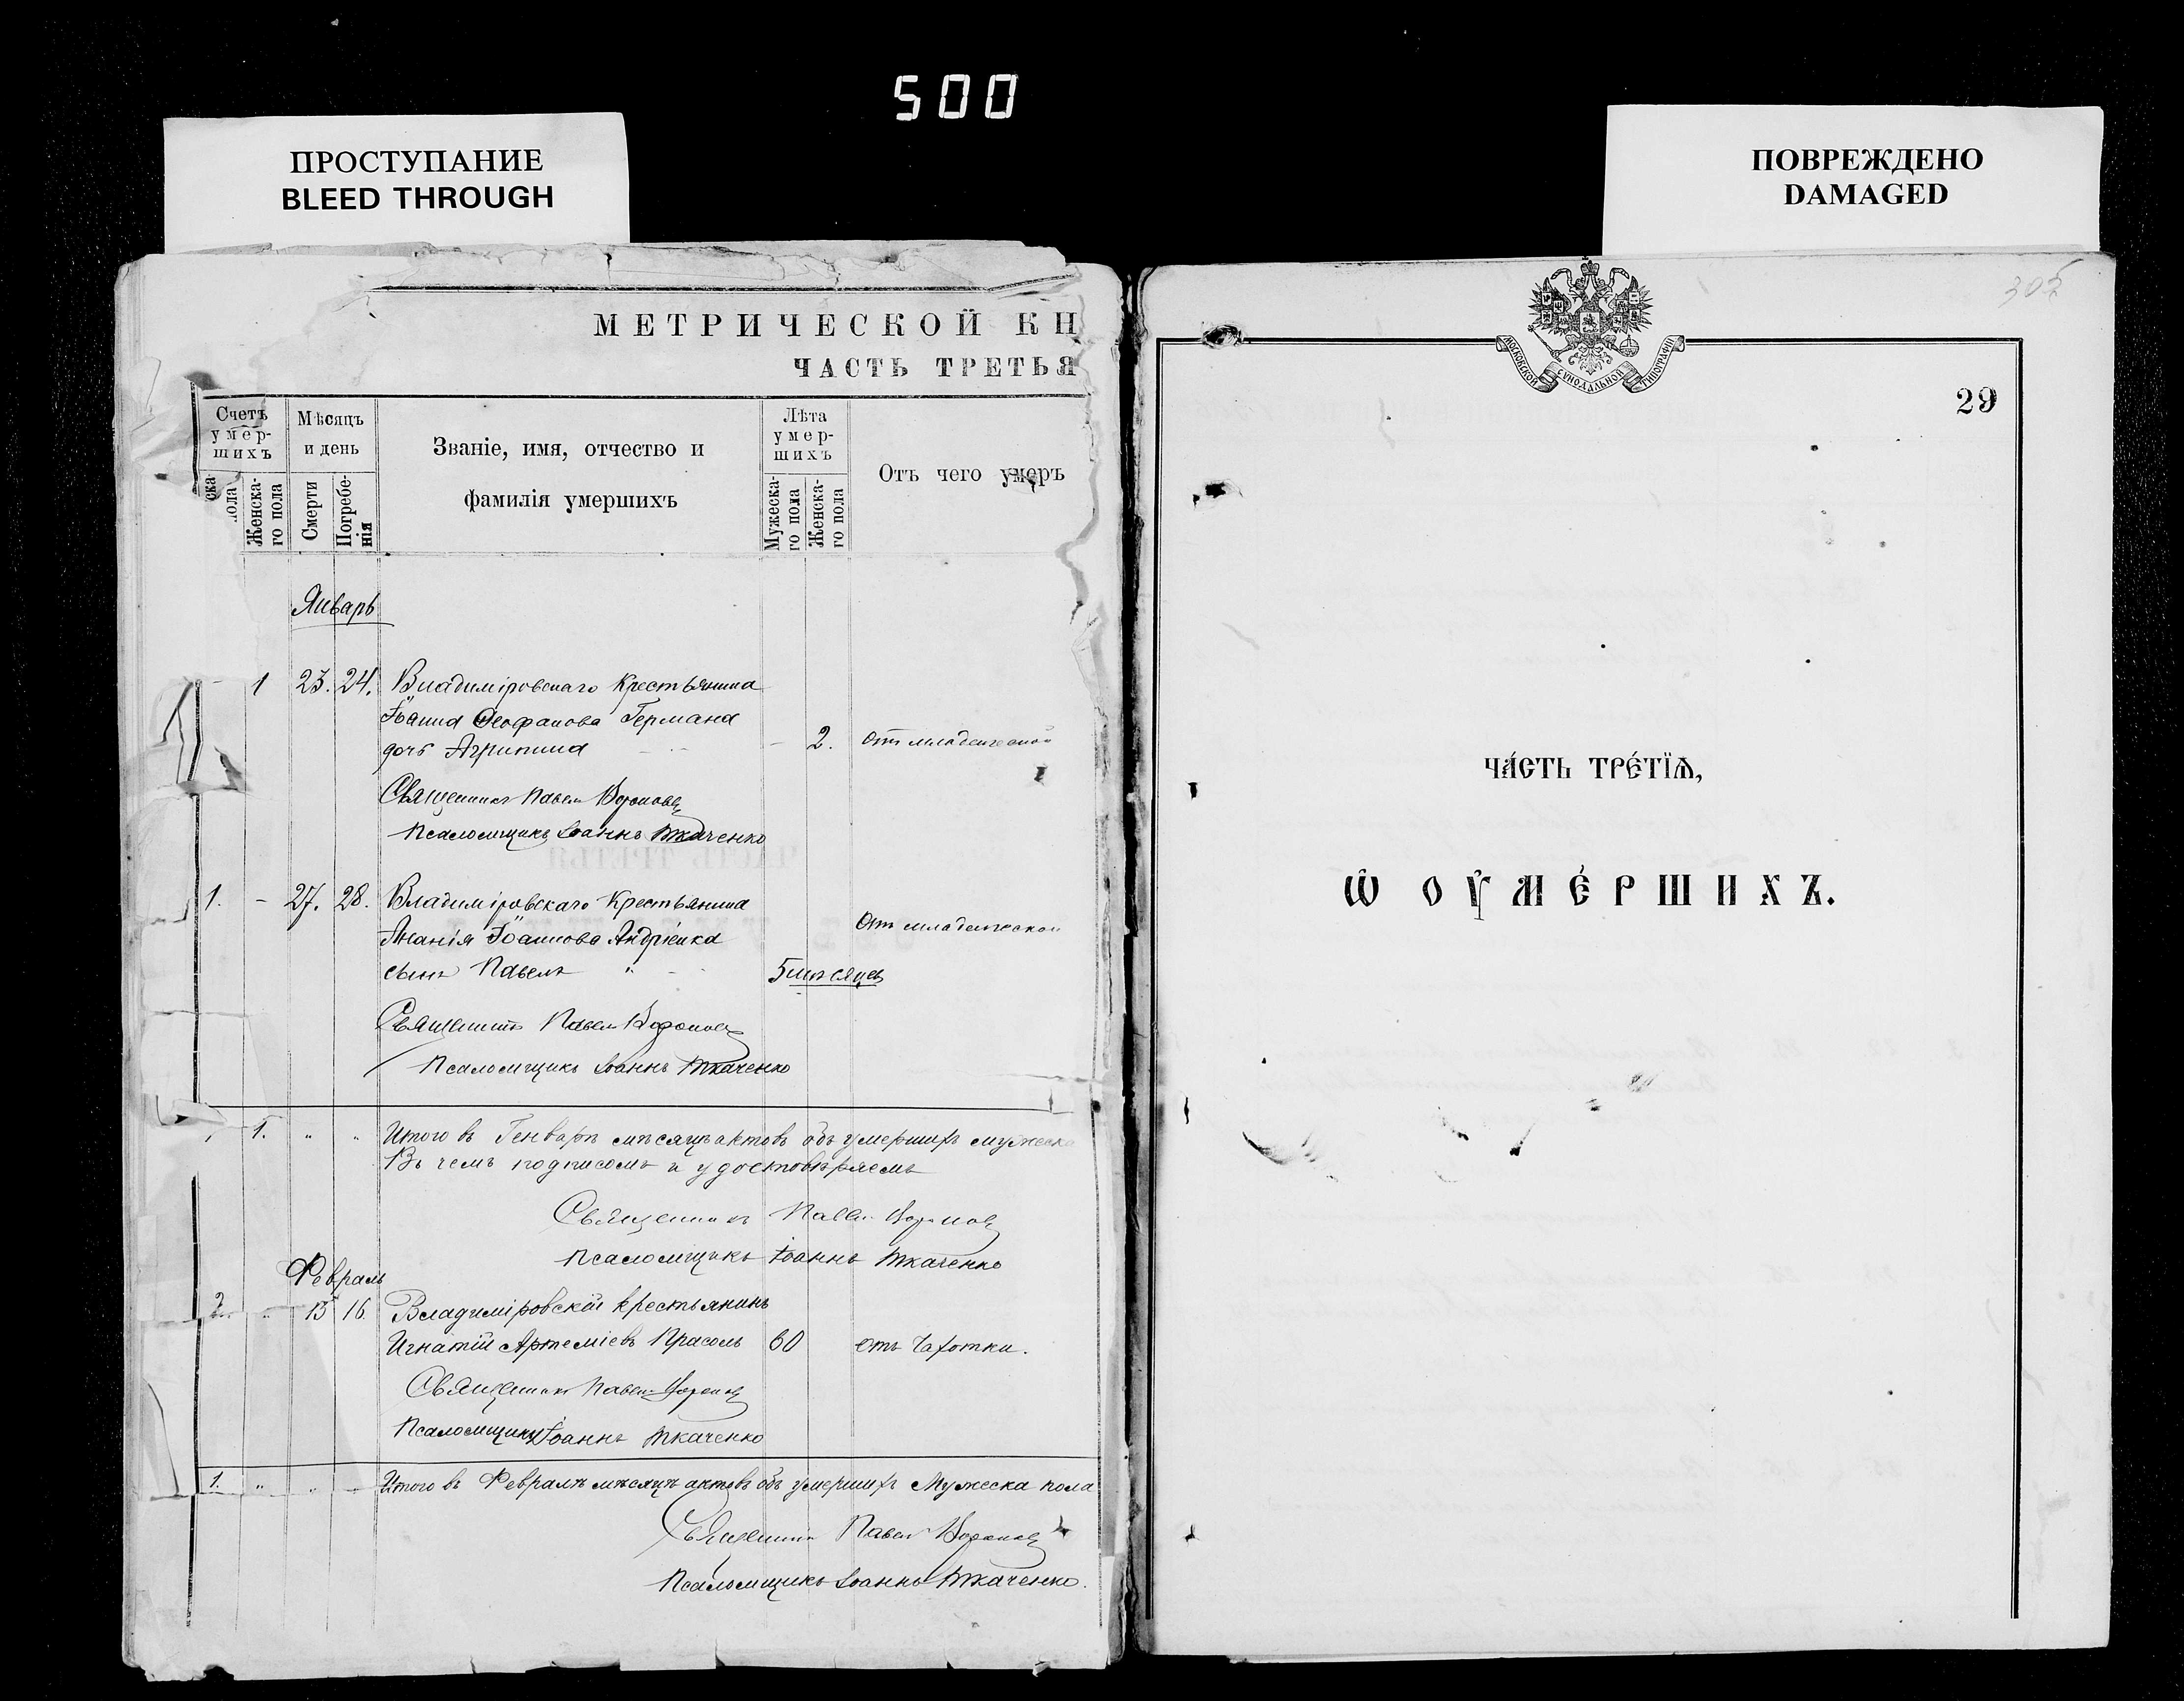 500
ПРОСТУПАНИЕ
BLEED THROUGH
ПОВРЕЖДЕНО
DAMAGED
МЕТРИЧЕСКОЙ КН
ЧАСТЬ ТРЕТЬЯ
Счетъ умер-шихъ
Мѣсяцъ и день
Званіе, имя, отчество и
фамилія умершихъ
Лѣта умер-шихъ
Отъ чего умеръ
ска
пола
Женска-го пола
Смерти
Погребе-нія
Мужеска-го пола
Женска-го пола
Январь
1 23. 24. Владиміровскаго Крестьянина
Іоанна Ѳеофанова Германа
дочь Агрипина - 2. От младенческой
Священникъ Павелъ
Псаломщикъ Іоаннъ Ткаченко
1. - 27. 28. Владиміровскаго Крестьянина
Ананія Іоаннова Андріенка От младенческой
сынъ Павелъ " 5 мѣсяцев
Священникъ Павелъ
Псаломщикъ Іоаннъ Ткаченко
1. " " Итого въ Генварѣ мѣсяцѣ актовъ объ умершихъ мужеска
Въ чемъ подписомъ и удостовѣряемъ
Священникъ Павелъ
Псаломщикъ Іоаннъ Ткаченко
Февраль
2. " 15 16. Владиміровскій крестьянинъ
Игнатій Артеміевъ Прасолъ 60 отъ Чахотки.
Священникъ Павелъ
Псаломщикъ Іоаннъ Ткаченко
1. " " " Итого въ Февралѣ мѣсяцѣ актовъ объ умершихъ Мужеска пола
Священникъ Павелъ
Псаломщикъ Іоаннъ Ткаченко.
305
МОСКОВСКОЙ СѴНОДАЛЬНОЙ ТИПОГРАФІИ
29
ЧА́СТЬ ТРЕ́ТЇѦ,
Ѡ҆ ОУ҆МЕ́РШИХЪ.